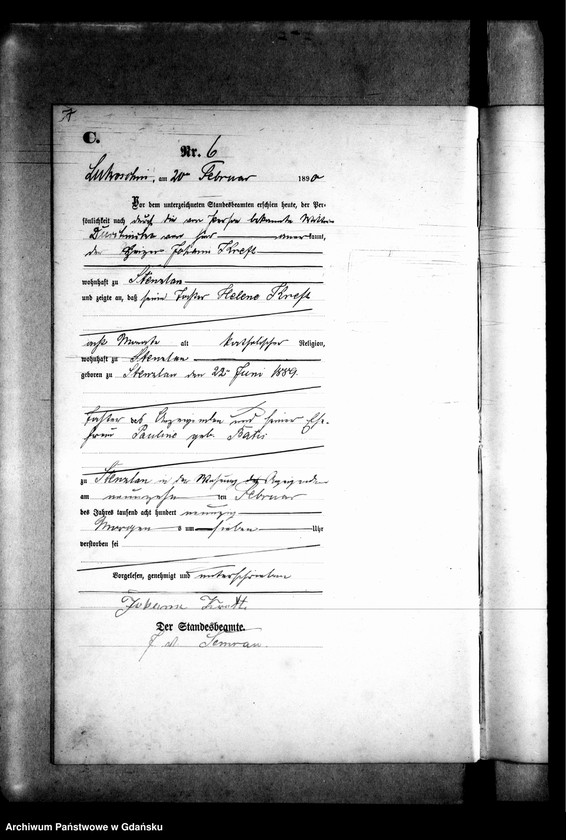 C.
Nr. 6
am 20 Februar 1890
Vor dem unterzeichneten Standesbeamten erschien heute, der Per-
sönlichkeit nach durch die von Person bekannte
kannt,
der Johann Kreft
wohnhaft zu Stenzlau
und zeigte an, daß seine Tochter Helene Kreft
acht Monate alt katholischer Religion,
wohnhaft zu Stenzlau
geboren zu Stenzlau den 22 Juni 1889.
Tochter des Anzeigenden und seiner Ehe-
frau Pauline geb.
zu Stenzlau in der Wohnung des Anzeigenden
am neunzehn ten Februar
des Jahres tausend acht hundert neunzig
Morgens um sieben Uhr
verstorben sei
Vorgelesen, genehmigt und unterschrieben
Johann Kreft
Der Standesbeamte.
Archiwum Państwowe w Gdańsku